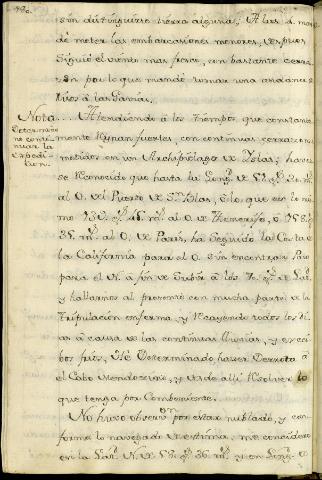 sin distinguirse tierra alguna; A las 2 mande
de meter las embarcasiones menores, despues
Siguió el viento mas fresco, con bastante cerra
zon por lo que mandé tomar una andana de
Rizos á las Gavias.
Nota ... Atendiendo á los tiempos que constante
Determino
no conti-
nuar la
Expedi-
cion.
mente Rynan fuertes, con continuas cerrazones
metidos en un Archipielago de Yslas; haver
se Reconocido que hasta la Long.d de
al O. del Puerto de Sn Blas, ó lo que es lo mis
mo al O. de Thenerife, ó
al O. de Paris, ha Seguido la Costa de
la California para el O. sin encontrar Paso
para el N. á fin de Subir á los 70. g.s de Lat.
y hallarnos al presente con mucha parte de la
Tripulacion enferma, y Recayendo todos los di-
as á causa de las continuas lluvias, y excesi
bos frios, He Determinado hacer Derrota á
el Cabo Mendocino, y desde alli Resolver lo
que tenga por Combeniente.
No huvo observon por estar nublado, y con
forme lo navegado de estima, me considero
en la Lat. N. de 58. g.s 36. m.s y en Long.d de